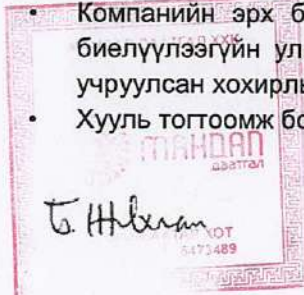 • Компанийн эрх б
биелүүлээгүй ул
учруулсан хохирлы
• Хууль тогтоомж бо
МАНДАЛ
даатгал
ХОТ
5473489